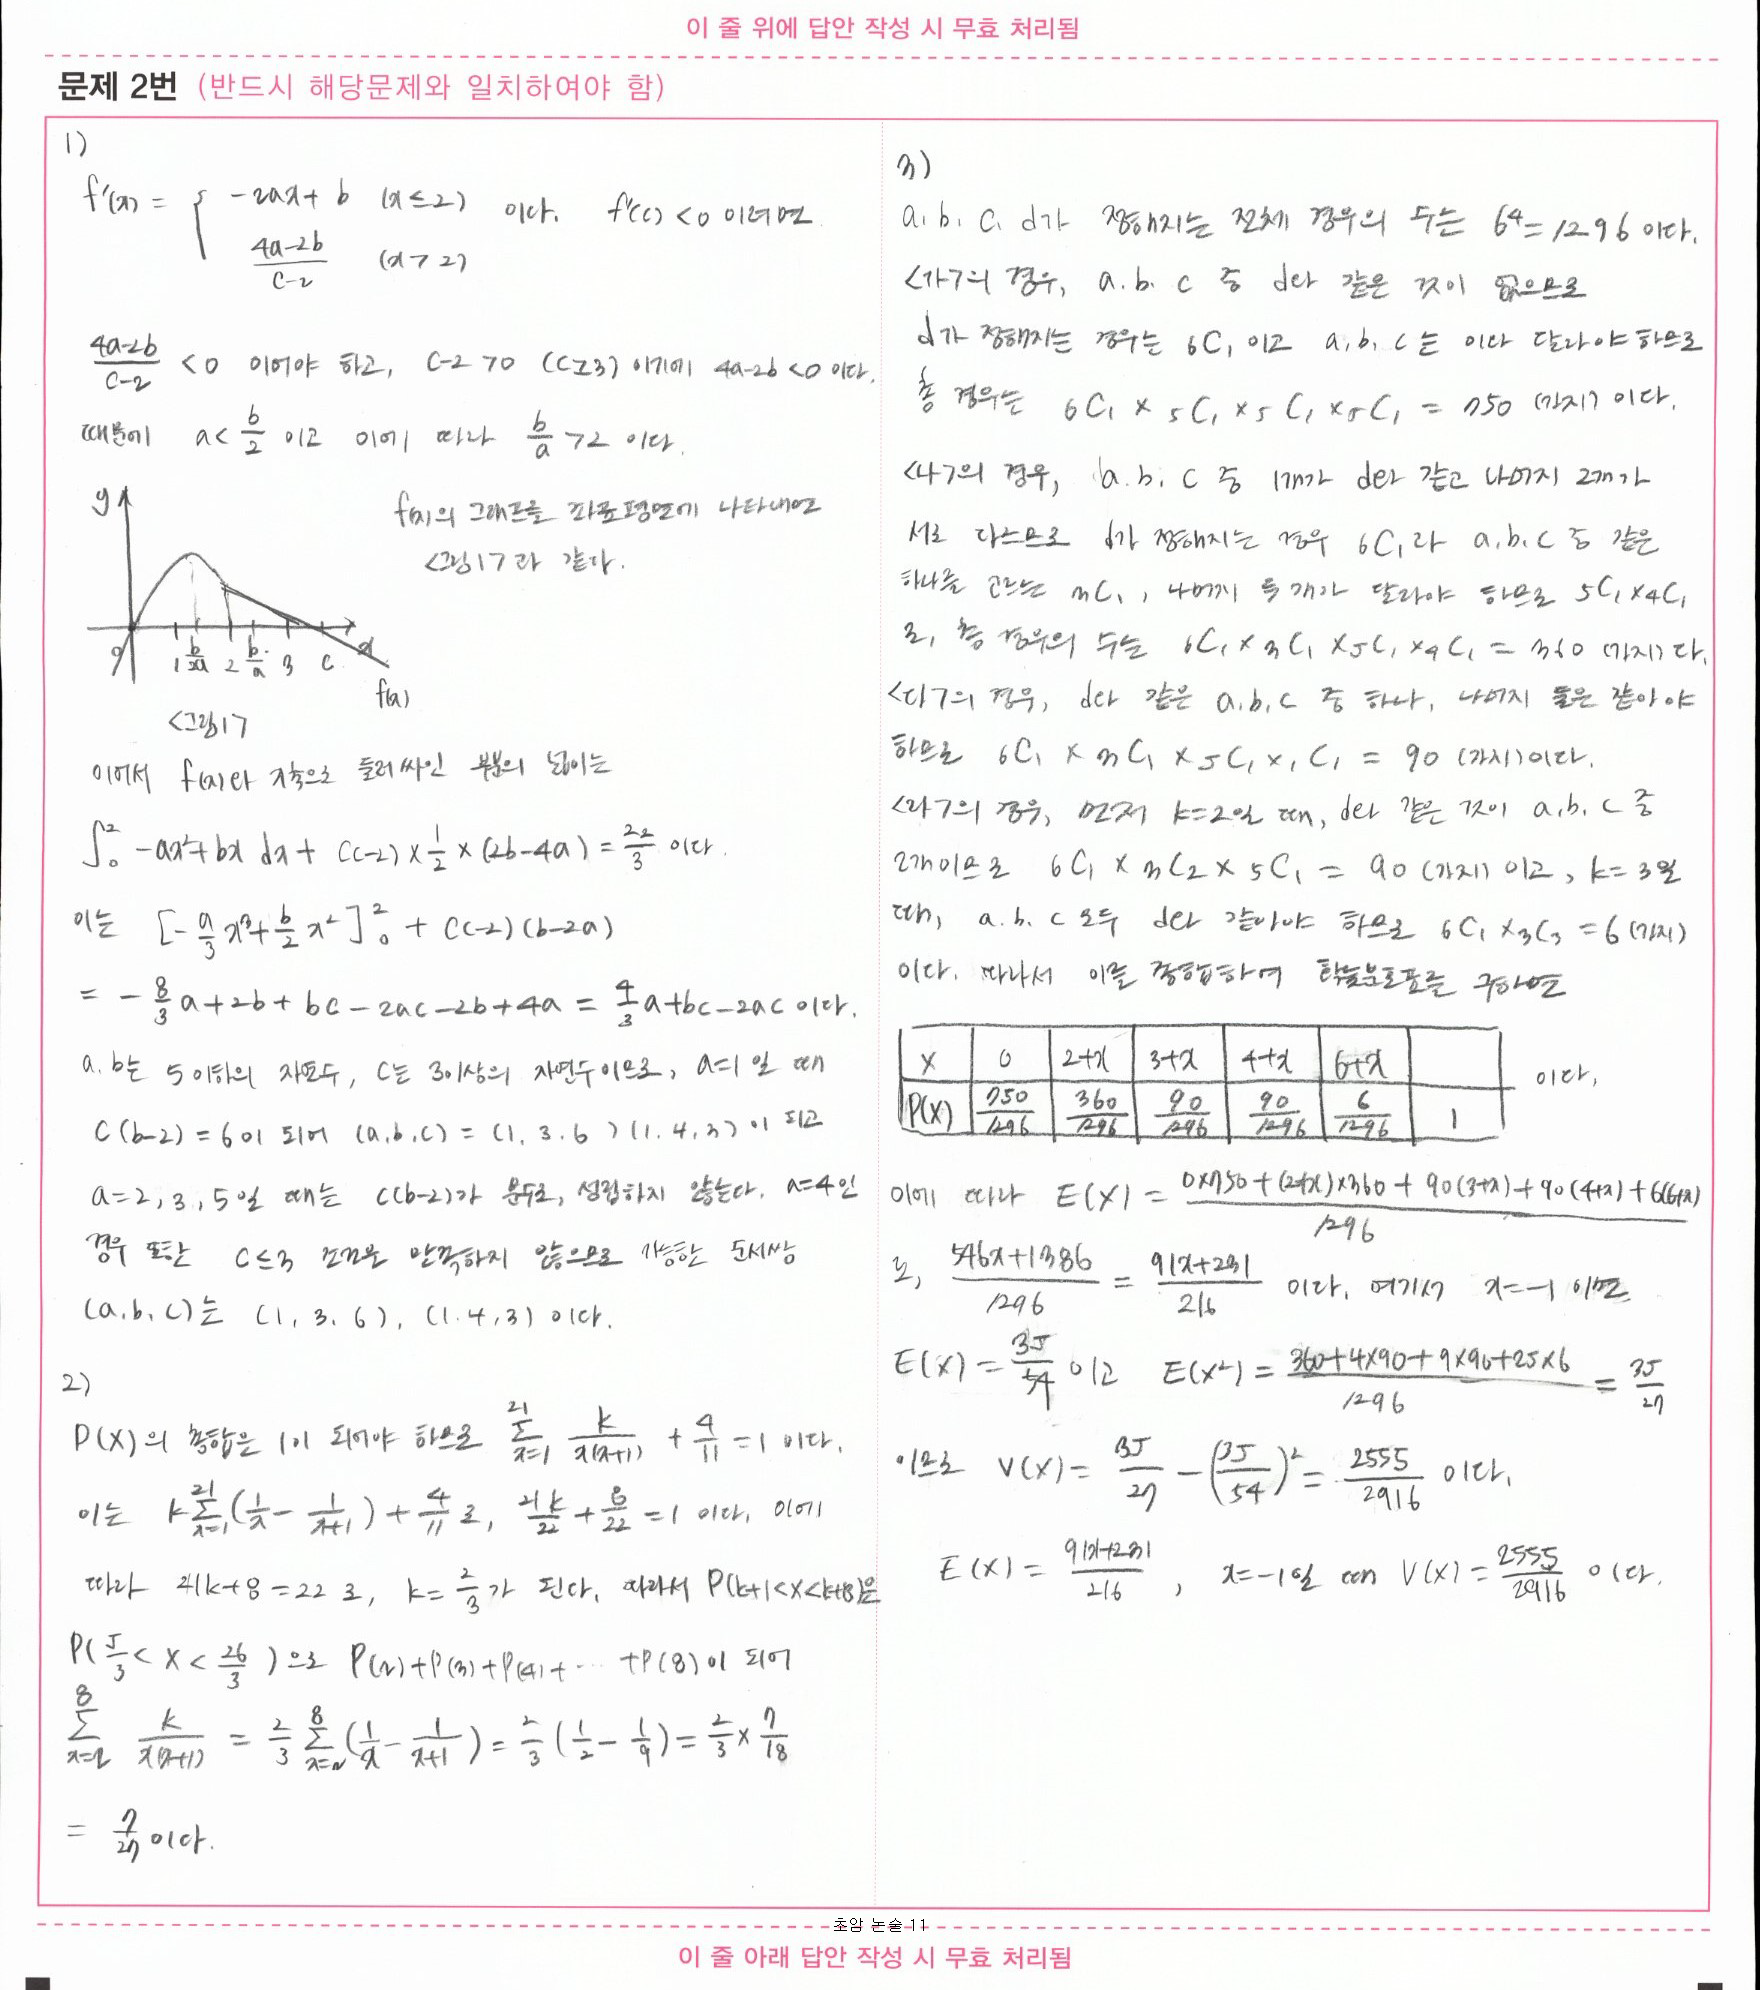 이 줄 위에 답안 작성 시 무효 처리됨
문제 2번 (반드시 해당문제와 일치하여야 함)
1)
f'(x) = { -2ax + b (x≤2)
4a-2b/c-2 (x>2) 이다. f'(c)<0 이려면
4a-2b/c-2 <0 이어야 하고, c-2>0 (c≥3) 이기에 4a-2b<0 이다.
때문에 a< b/2 이고 이에 따라 b/a >2 이다.
y
f(x)의 그래프를 좌표평면에 나타내면
<그림1>과 같다.
0 1 b/2a 2 b/a 3 c x
f(x)
<그림1>
이어서 f(x)와 x축으로 둘러싸인 부분의 넓이는
∫₀² -ax²+bx dx + (c-2)×1/2×(2b-4a) = 22/3 이다.
이는 [-a/3 x³ + b/2 x²]₀² + (c-2)(b-2a)
= -8/3 a+2b+bc-2ac-2b+4a = 4/3 a+bc-2ac 이다.
a, b는 5이하의 자연수, c는 3이상의 자연수이므로, a=1 일 때
c(b-2)=6이 되어 (a,b,c) = (1, 3, 6) (1, 4, 3) 이 되고
a=2, 3, 5일 때는 c(b-2)가 분수로, 성립하지 않는다. a=4인
경우 또한 c≤3 조건을 만족하지 않으므로 가능한 순서쌍
(a, b, c)는 (1, 3, 6), (1, 4, 3) 이다.
2)
P(X)의 총합은 1이 되어야 하므로 21Σx=1 k/x(x+1) + 4/11 = 1 이다.
이는 k 21Σx=1 (1/x - 1/x+1) + 4/11 로, 21k/22 + 8/22 = 1 이다. 이에
따라 21k+8=22 로, k= 2/3 가 된다. 따라서 P(k+1<X<k+8)은
P(5/3 < X < 26/3) 으로 P(2)+P(3)+P(4)+ ... +P(8)이 되어
8Σx=2 k/x(x+1) = 2/3 8Σx=2 (1/x - 1/x+1) = 2/3 (1/2 - 1/9) = 2/3 × 7/18
= 7/27 이다.
3)
a, b, c, d가 정해지는 전체 경우의 수는 6⁴=1296 이다.
<가>의 경우, a, b, c 중 d와 같은 것이 없으므로
d가 정해지는 경우는 6C1 이고 a, b, c는 이와 달라야 하므로
총 경우는 6C1 × 5C1 × 5C1 × 5C1 = 750 (가지) 이다.
<나>의 경우, a, b, c 중 1개가 d와 같고 나머지 2개가
서로 다르므로 d가 정해지는 경우 6C1과 a, b, c 중 같은
하나를 고르는 3C1, 나머지 두 개가 달라야 하므로 5C1×4C1
로, 총 경우의 수는 6C1 × 3C1 × 5C1 × 4C1 = 360 (가지)다.
<다>의 경우, d와 같은 a, b, c 중 하나, 나머지 둘은 같아야
하므로 6C1 × 3C1 × 5C1 × 1C1 = 90 (가지)이다.
<라>의 경우, 먼저 k=2일 때, d와 같은 것이 a, b, c 중
2개이므로 6C1 × 3C2 × 5C1 = 90 (가지) 이고, k=3일
때, a, b, c 모두 d와 같아야 하므로 6C1×3C3=6 (가지)
이다. 따라서 이를 종합하여 확률분포표를 구하면
X 0 2+x 3+x 4+x 6+x
P(X) 750/1296 360/1296 90/1296 90/1296 6/1296 1 이다.
이에 따라 E(X) = 0×750+(2+x)×360+90(3+x)+90(4+x)+6(6+x)/1296
로, 546x+1386/1296 = 91x+231/216 이다. 여기서 x=-1 이면
E(X)= 35/54 이고 E(X²)= 360+4×90+9×90+25×6/1296 = 35/27
이므로 V(X)= 35/27 - (35/54)² = 2555/2916 이다.
E(X) = 91x+231/216, x=-1일 때 V(X)= 2555/2916 이다.
초암 논술 11
이 줄 아래 답안 작성 시 무효 처리됨